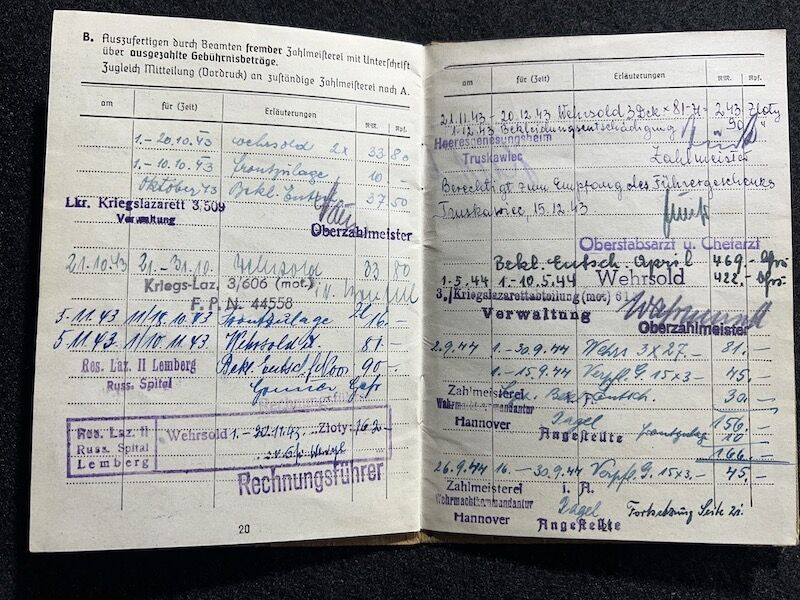 B. Auszufertigen durch Beamten fremder Zahlmeisterei mit Unterschrift
über ausgezahlte Gebührnisbeträge.
Zugleich Mitteilung (Vordruck) an zuständige Zahlmeisterei nach A.
am für (Zeit) Erläuterungen RM. Rpf.
1.-20.10.43 Wehrsold 2x 33 80
1.-10.10.43 Frontzulage 10 -
Oktober 43 Bekl. Entsch. 37 50
Lkr. Kriegslazarett 3/509
Verwaltung
Oberzahlmeister
21.10.43 21.-31.10. Wehrsold 33 80
Kriegs-Laz. 3/606 (mot.)
F.P.N. 44558
5.11.43 11/10.11.43 Wehrsold 81
Bekl. Entsch. Nov. 90.-
Res. Laz. II Lemberg
Russ. Spital
Res. Laz. II
Russ. Spital
Lemberg
Wehrsold 1.-20.11.43 Zloty: 162.-
Rechnungsführer
20
am für (Zeit) Erläuterungen RM. Rpf.
21.11.43 - 20.12.43 Wehrsold 3 Dek x 81.- = 243 Zloty
1.12.43 Bekleidungsentschädigung 90 "
Heeresgenesungsheim
Truskawiec
Zahlmeister
Berechtigt zum Empfang des Führergeschenks
Truskawiec, 15.12.43
Oberstabsarzt u. Chefarzt
Bekl. Entsch. April 469.-
1.5.44 1.-10.5.44 Wehrsold 422.-
3./Kriegslazarettabteilung (mot)
Verwaltung
Oberzahlmeister
2.9.44 1.-30.9.44 Wehrs. 3x27.- 81.-
1.-15.9.44 Verpfl. G. 15x3.- 45.-
30.-
Zahlmeisterei
Wehrmachtkommandantur
Hannover
Angestellte
156.-
Frontzulage 10
166.-
26.9.44 16.-30.9.44 Verpfl. G. 15x3.- 45.-
Zahlmeisterei i. A.
Wehrmachtkommandantur
Hannover
Angestellte
Fortsetzung Seite 21.